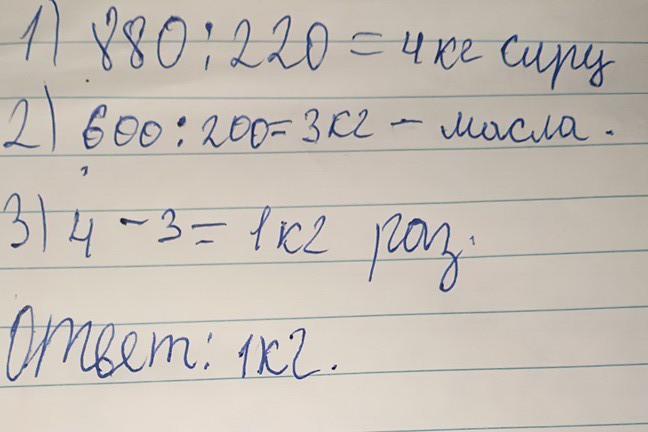 1) 880:220=4кг сиру
2) 600:200=3кг - масла.
3) 4-3=1кг раз.
Ответ: 1кг.